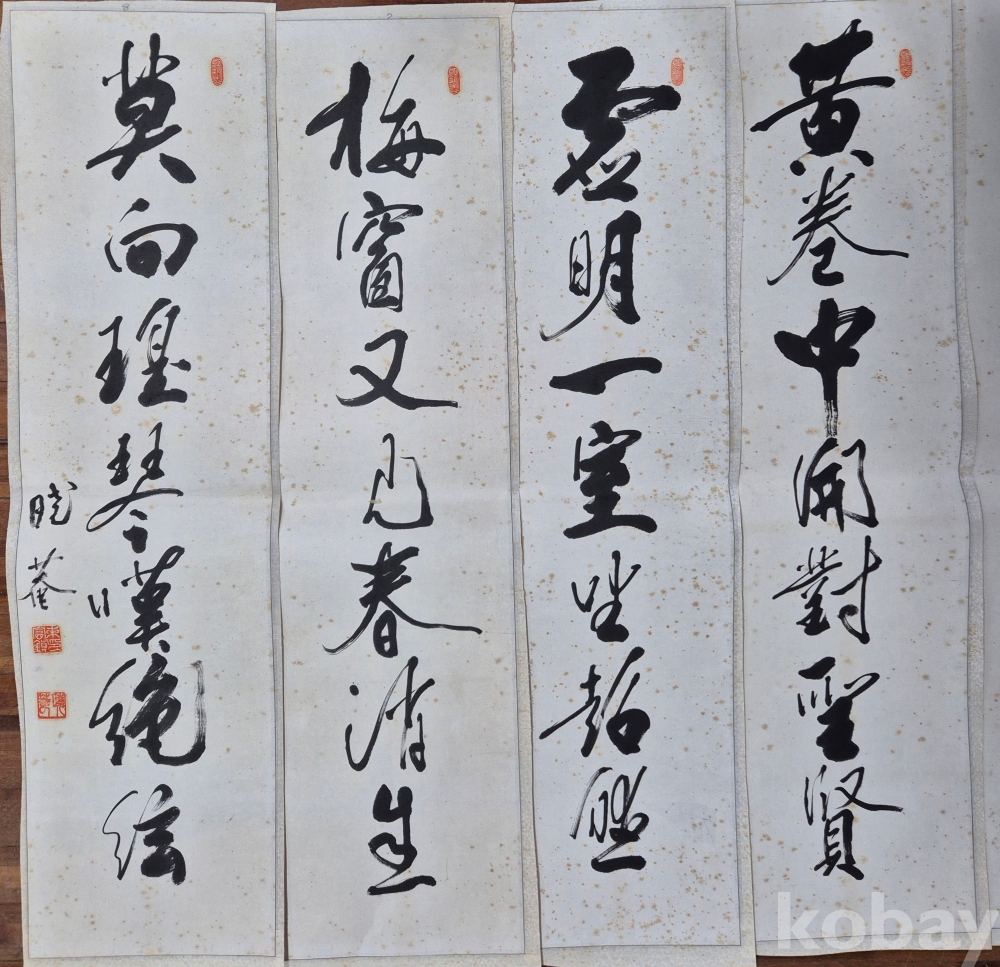 黃卷中開對聖賢
虛明一室坐超然
梅窗又見春消息
莫向瑤琴嘆絶絃
曉菴
8
7
6
kobay